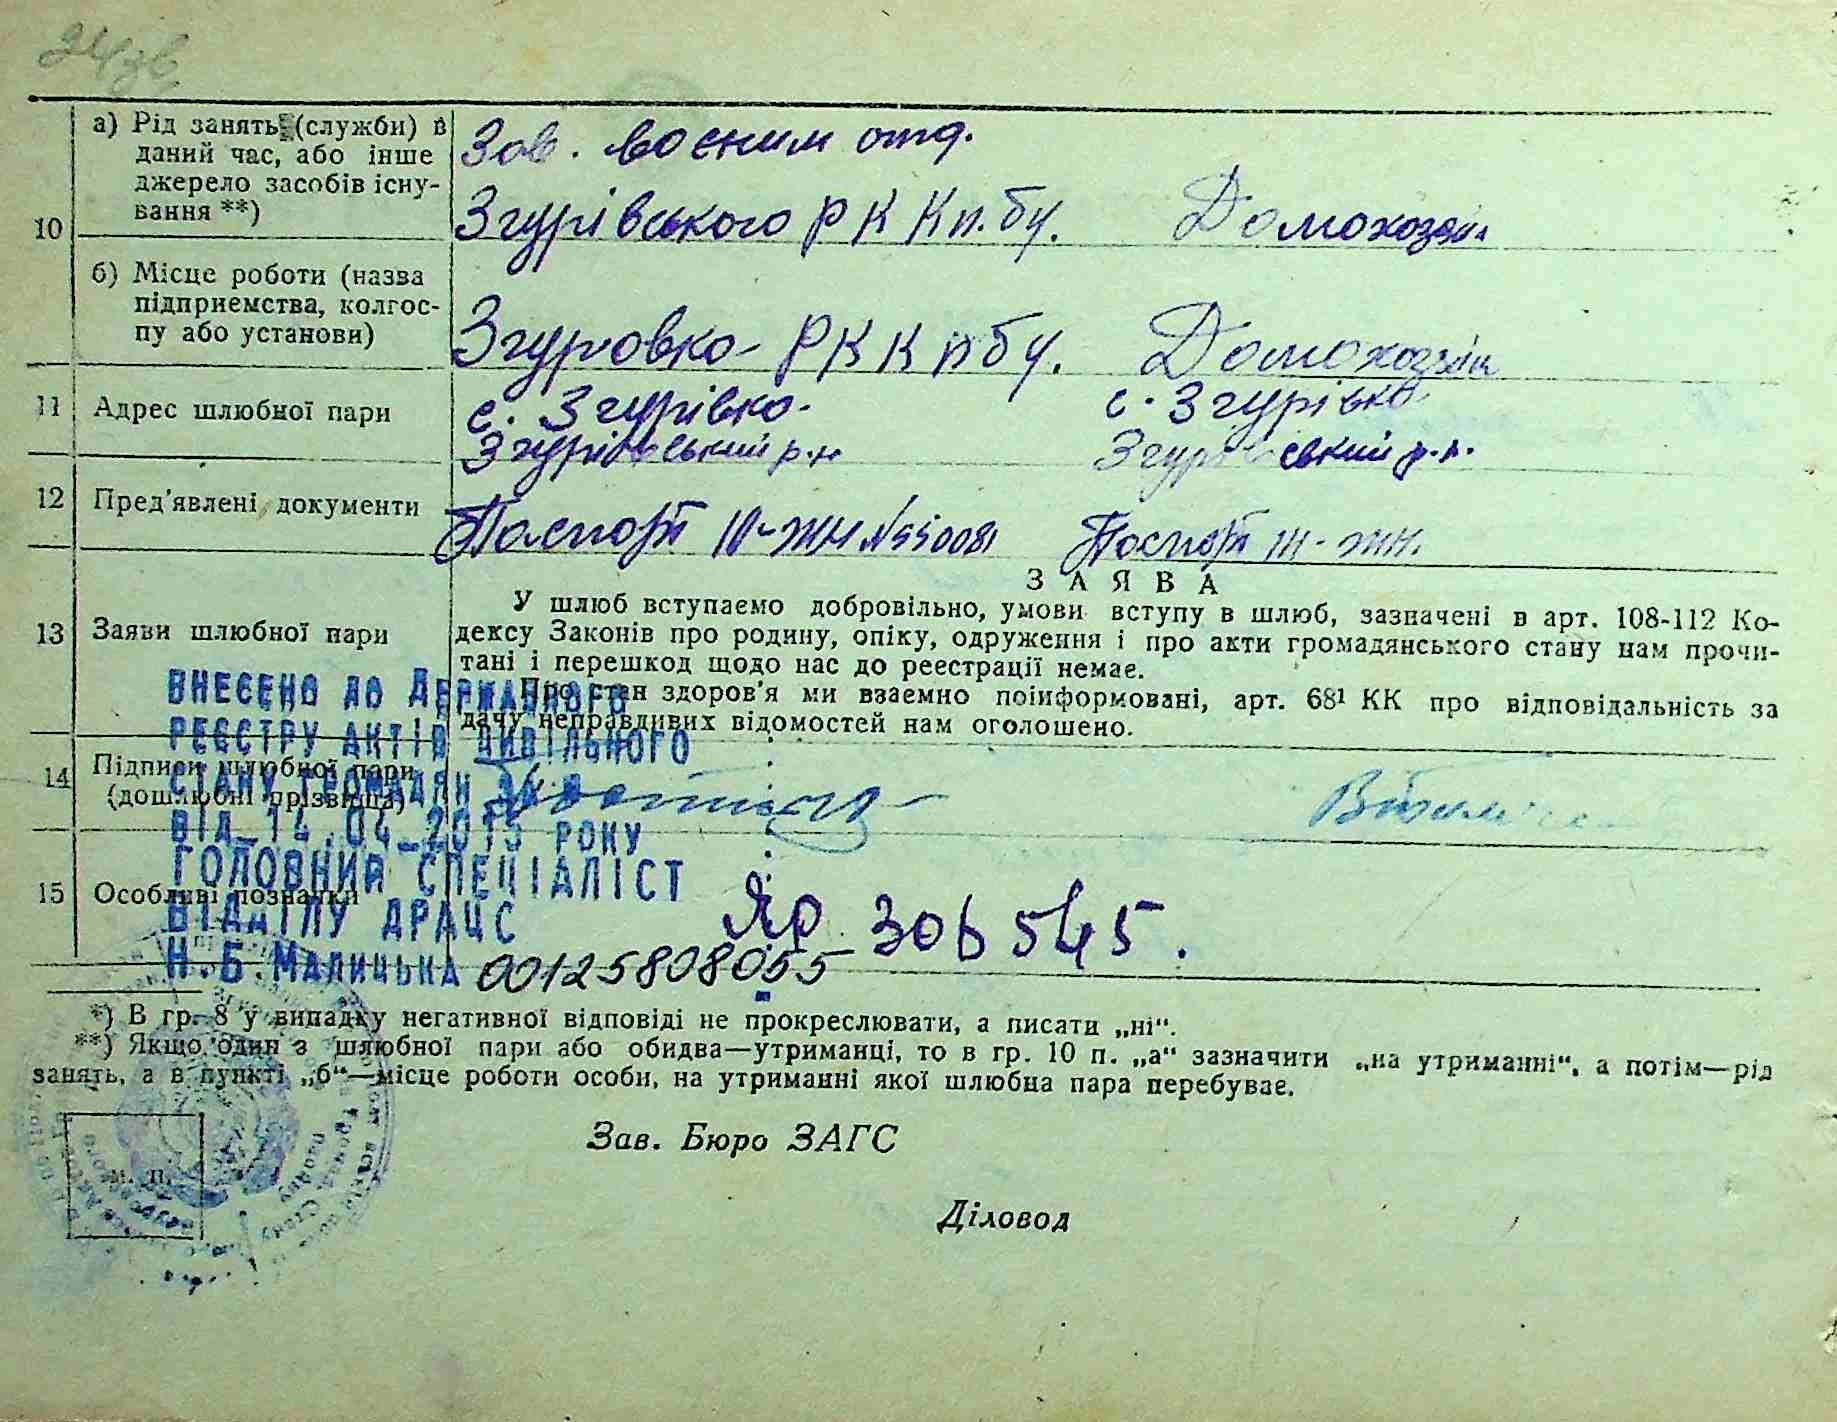 24зв
а) Рід занять (служби) в
даний час, або інше
джерело засобів існу-
вання **)
Зав. воєним отд.
Згурівського РК Кп.бу. Домохозяй
10
б) Місце роботи (назва
підприємства, колгос-
пу або установи)
Згуровка РККпбу. Домохозяй
11 Адрес шлюбної пари
с. Згурівка с. Згурівка
Згурівський р-н Згурівський р-н.
12 Пред'явлені документи
Паспорт №550081 Паспорт
ЗАЯВА
13 Заяви шлюбної пари
У шлюб вступаємо добровільно, умови вступу в шлюб, зазначені в арт. 108-112 Ко-
дексу Законів про родину, опіку, одруження і про акти громадянського стану нам прочи-
тані і перешкод щодо нас до реєстрації немає.
Про стан здоров'я ми взаємно поінформовані, арт. 68¹ КК про відповідальність за
дачу неправдивих відомостей нам оголошено.
14 Підписи шлюбної пари
(дошлюбні прізвища)
15 Особливі познаки
ВНЕСЕНО ДО ДЕРЖАВНОГО
РЕЄСТРУ АКТІВ ЦИВІЛЬНОГО
СТАНУ ГРОМАДЯН ЗА №
ВІД_14.04_2015 РОКУ
ГОЛОВНИЙ СПЕЦІАЛІСТ
ВІДДІЛУ ДРАЦС
Н.Б.МАЛИЦЬКА 00125808055
Яр 306545.
*) В гр. 8 у випадку негативної відповіді не прокреслювати, а писати „ні“.
**) Якщо один з шлюбної пари або обидва—утриманці, то в гр. 10 п. „а“ зазначити „на утриманні“, а потім—рід
занять, а в пункті „б“—місце роботи особи, на утриманні якої шлюбна пара перебуває.
Зав. Бюро ЗАГС
м. п.
Діловод